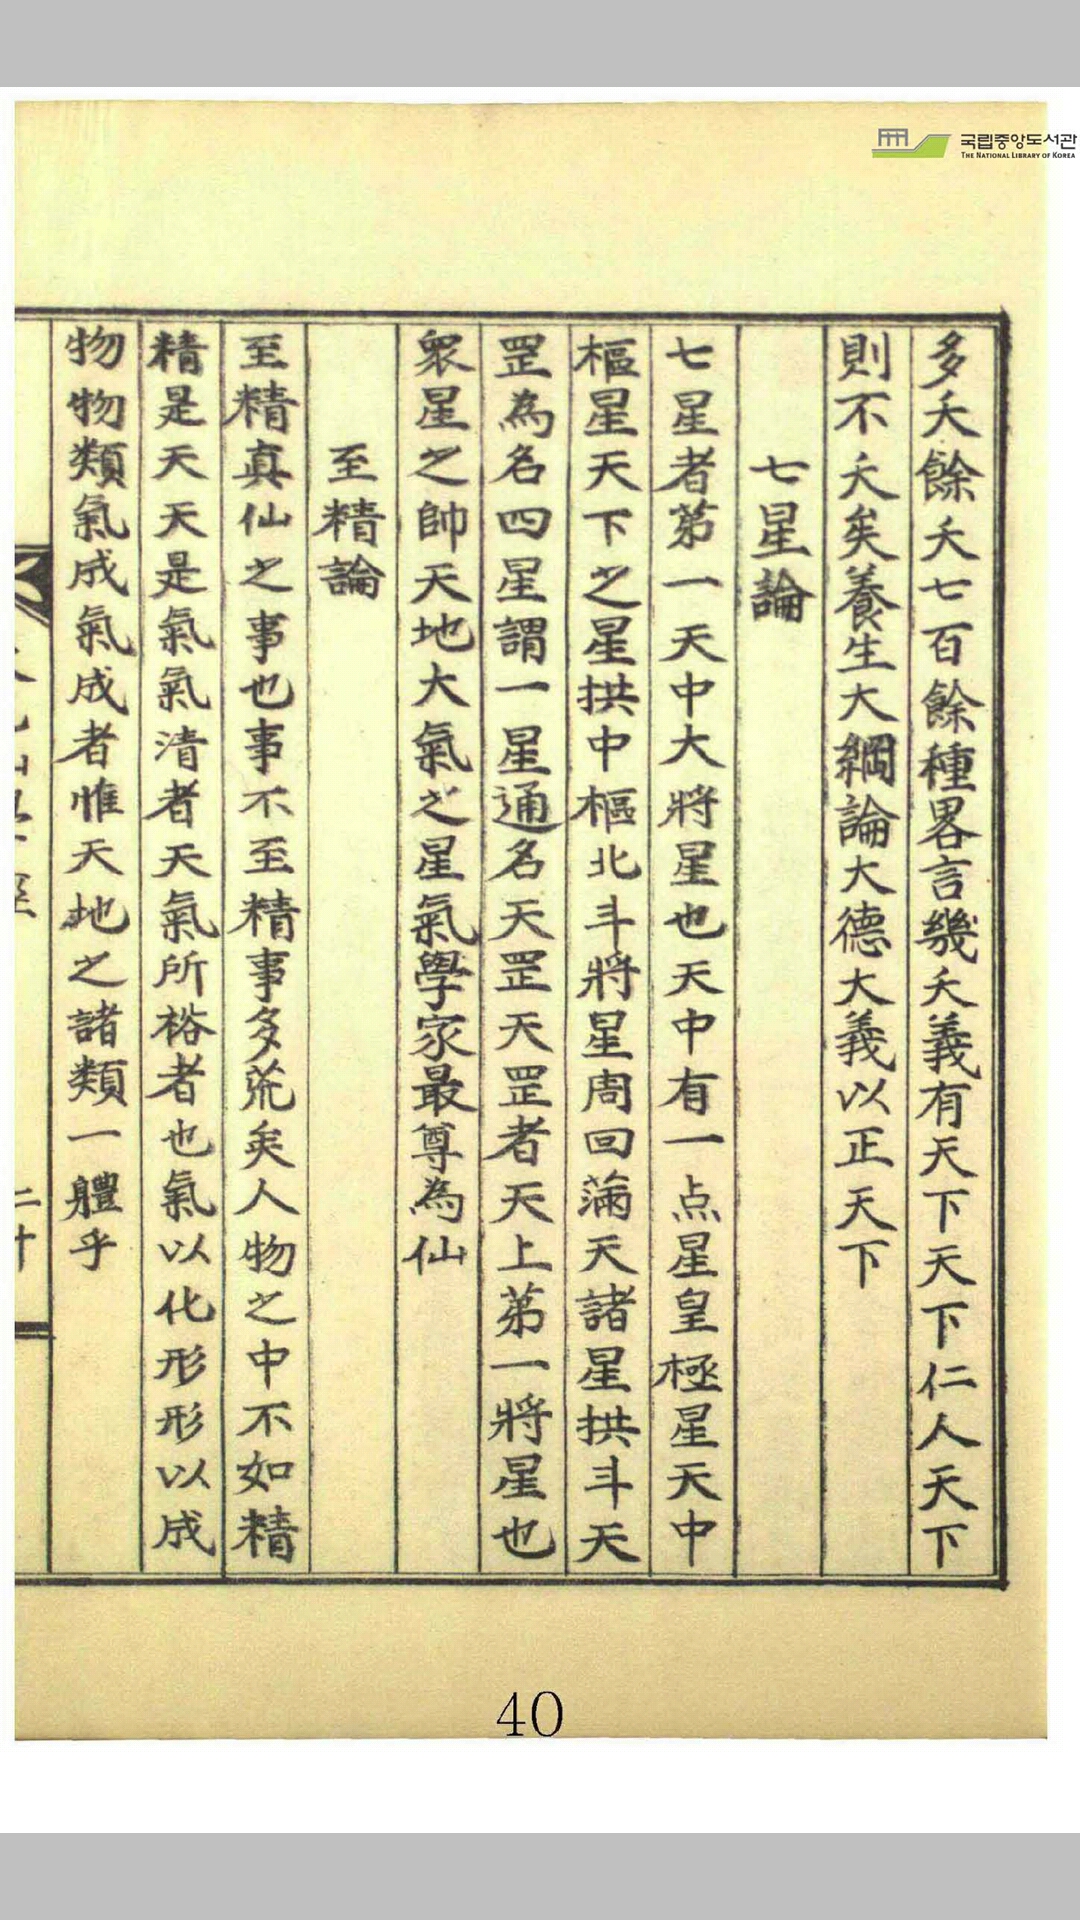 국립중앙도서관
THE NATIONAL LIBRARY OF KOREA
多夭餘夭七百餘種畧言幾夭義有天下天下仁人天下
則不夭矣養生大綱論大德大義以正天下
七星論
七星者第一天中大將星也天中有一点星皇極星天中
樞星天下之星拱中樞北斗將星周回滿天諸星拱斗天
罡為名四星謂一星通名天罡天罡者天上第一將星也
衆星之帥天地大氣之星氣學家最尊為仙
至精論
至精真仙之事也事不至精事多荒矣人物之中不如精
精是天天是氣氣清者天氣所裕者也氣以化形形以成
物物類氣成氣成者惟天地之諸類一軆乎
二十
40